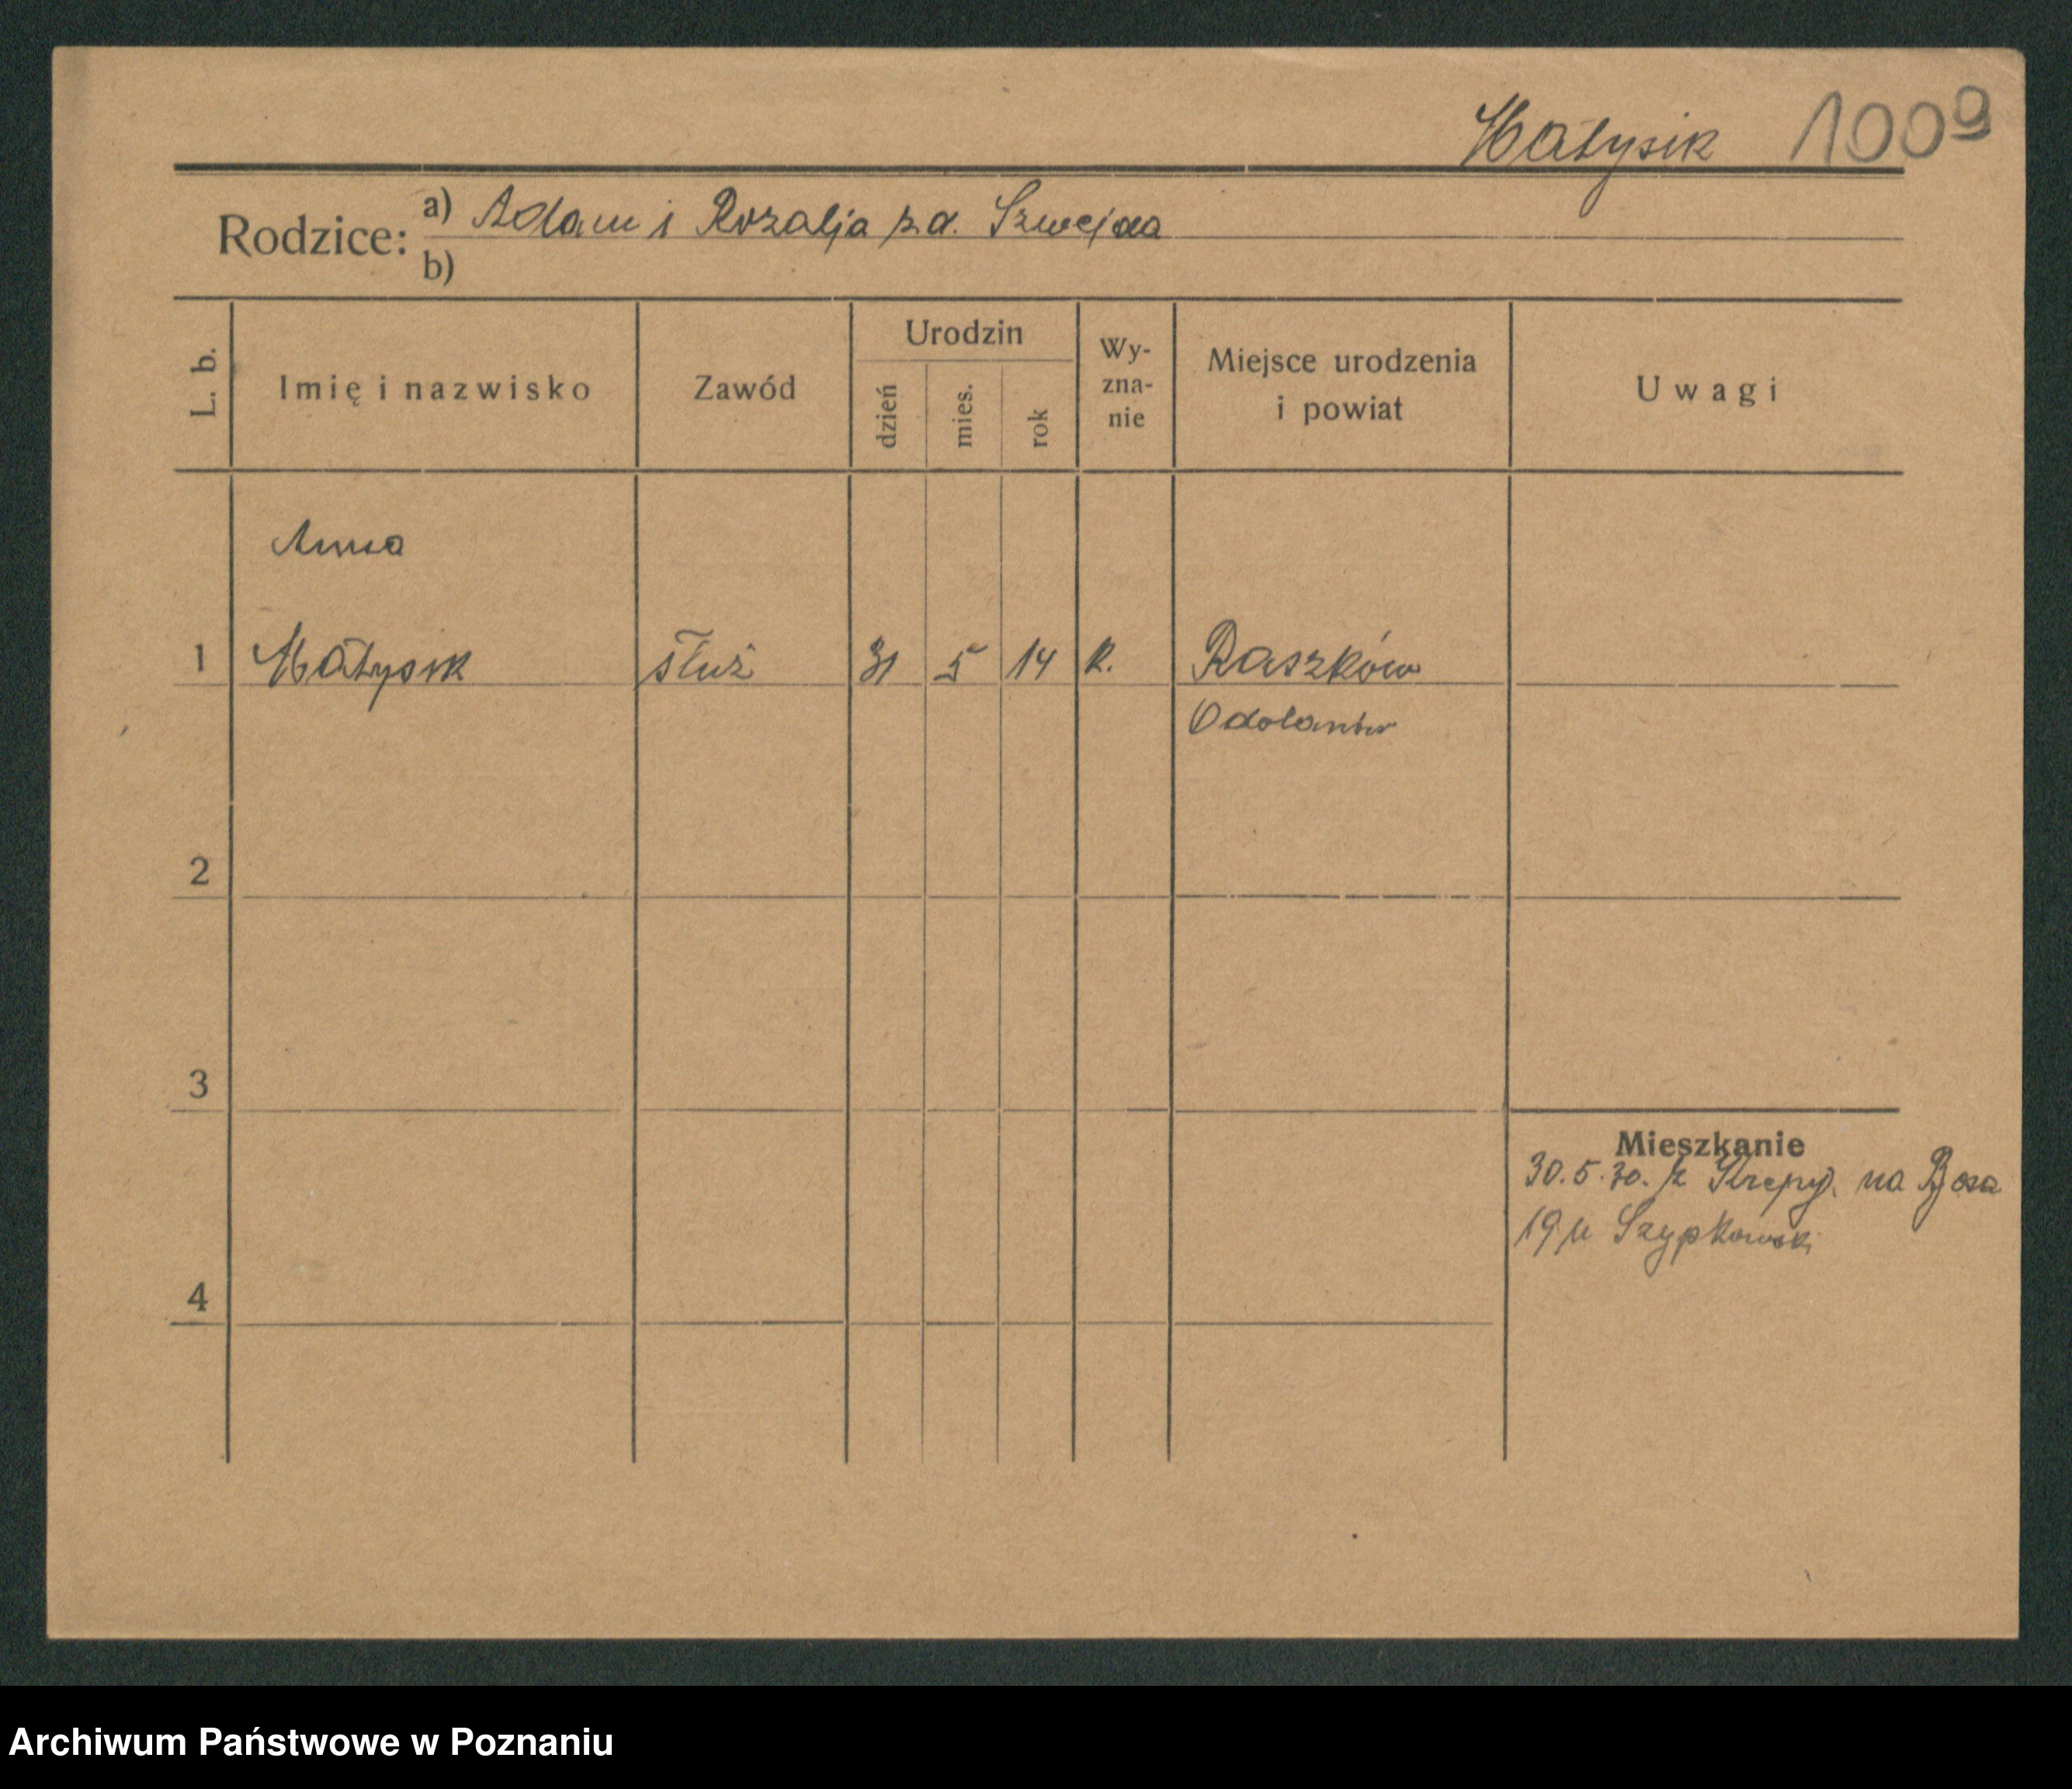 Matysik 1009
Rodzice: a) Adam i Rozalja z d. Szwejda
b)
L. b. Imię i nazwisko Zawód Urodzin dzień mies. rok Wy-zna-nie Miejsce urodzenia i powiat Uwagi
Anna
1 Matysik służ 31 5 14 k. Raszków
Odolanów
2
3
Mieszkanie
30.5.30. z Krępy. na
19 u Szypkowski
4
Archiwum Państwowe w Poznaniu